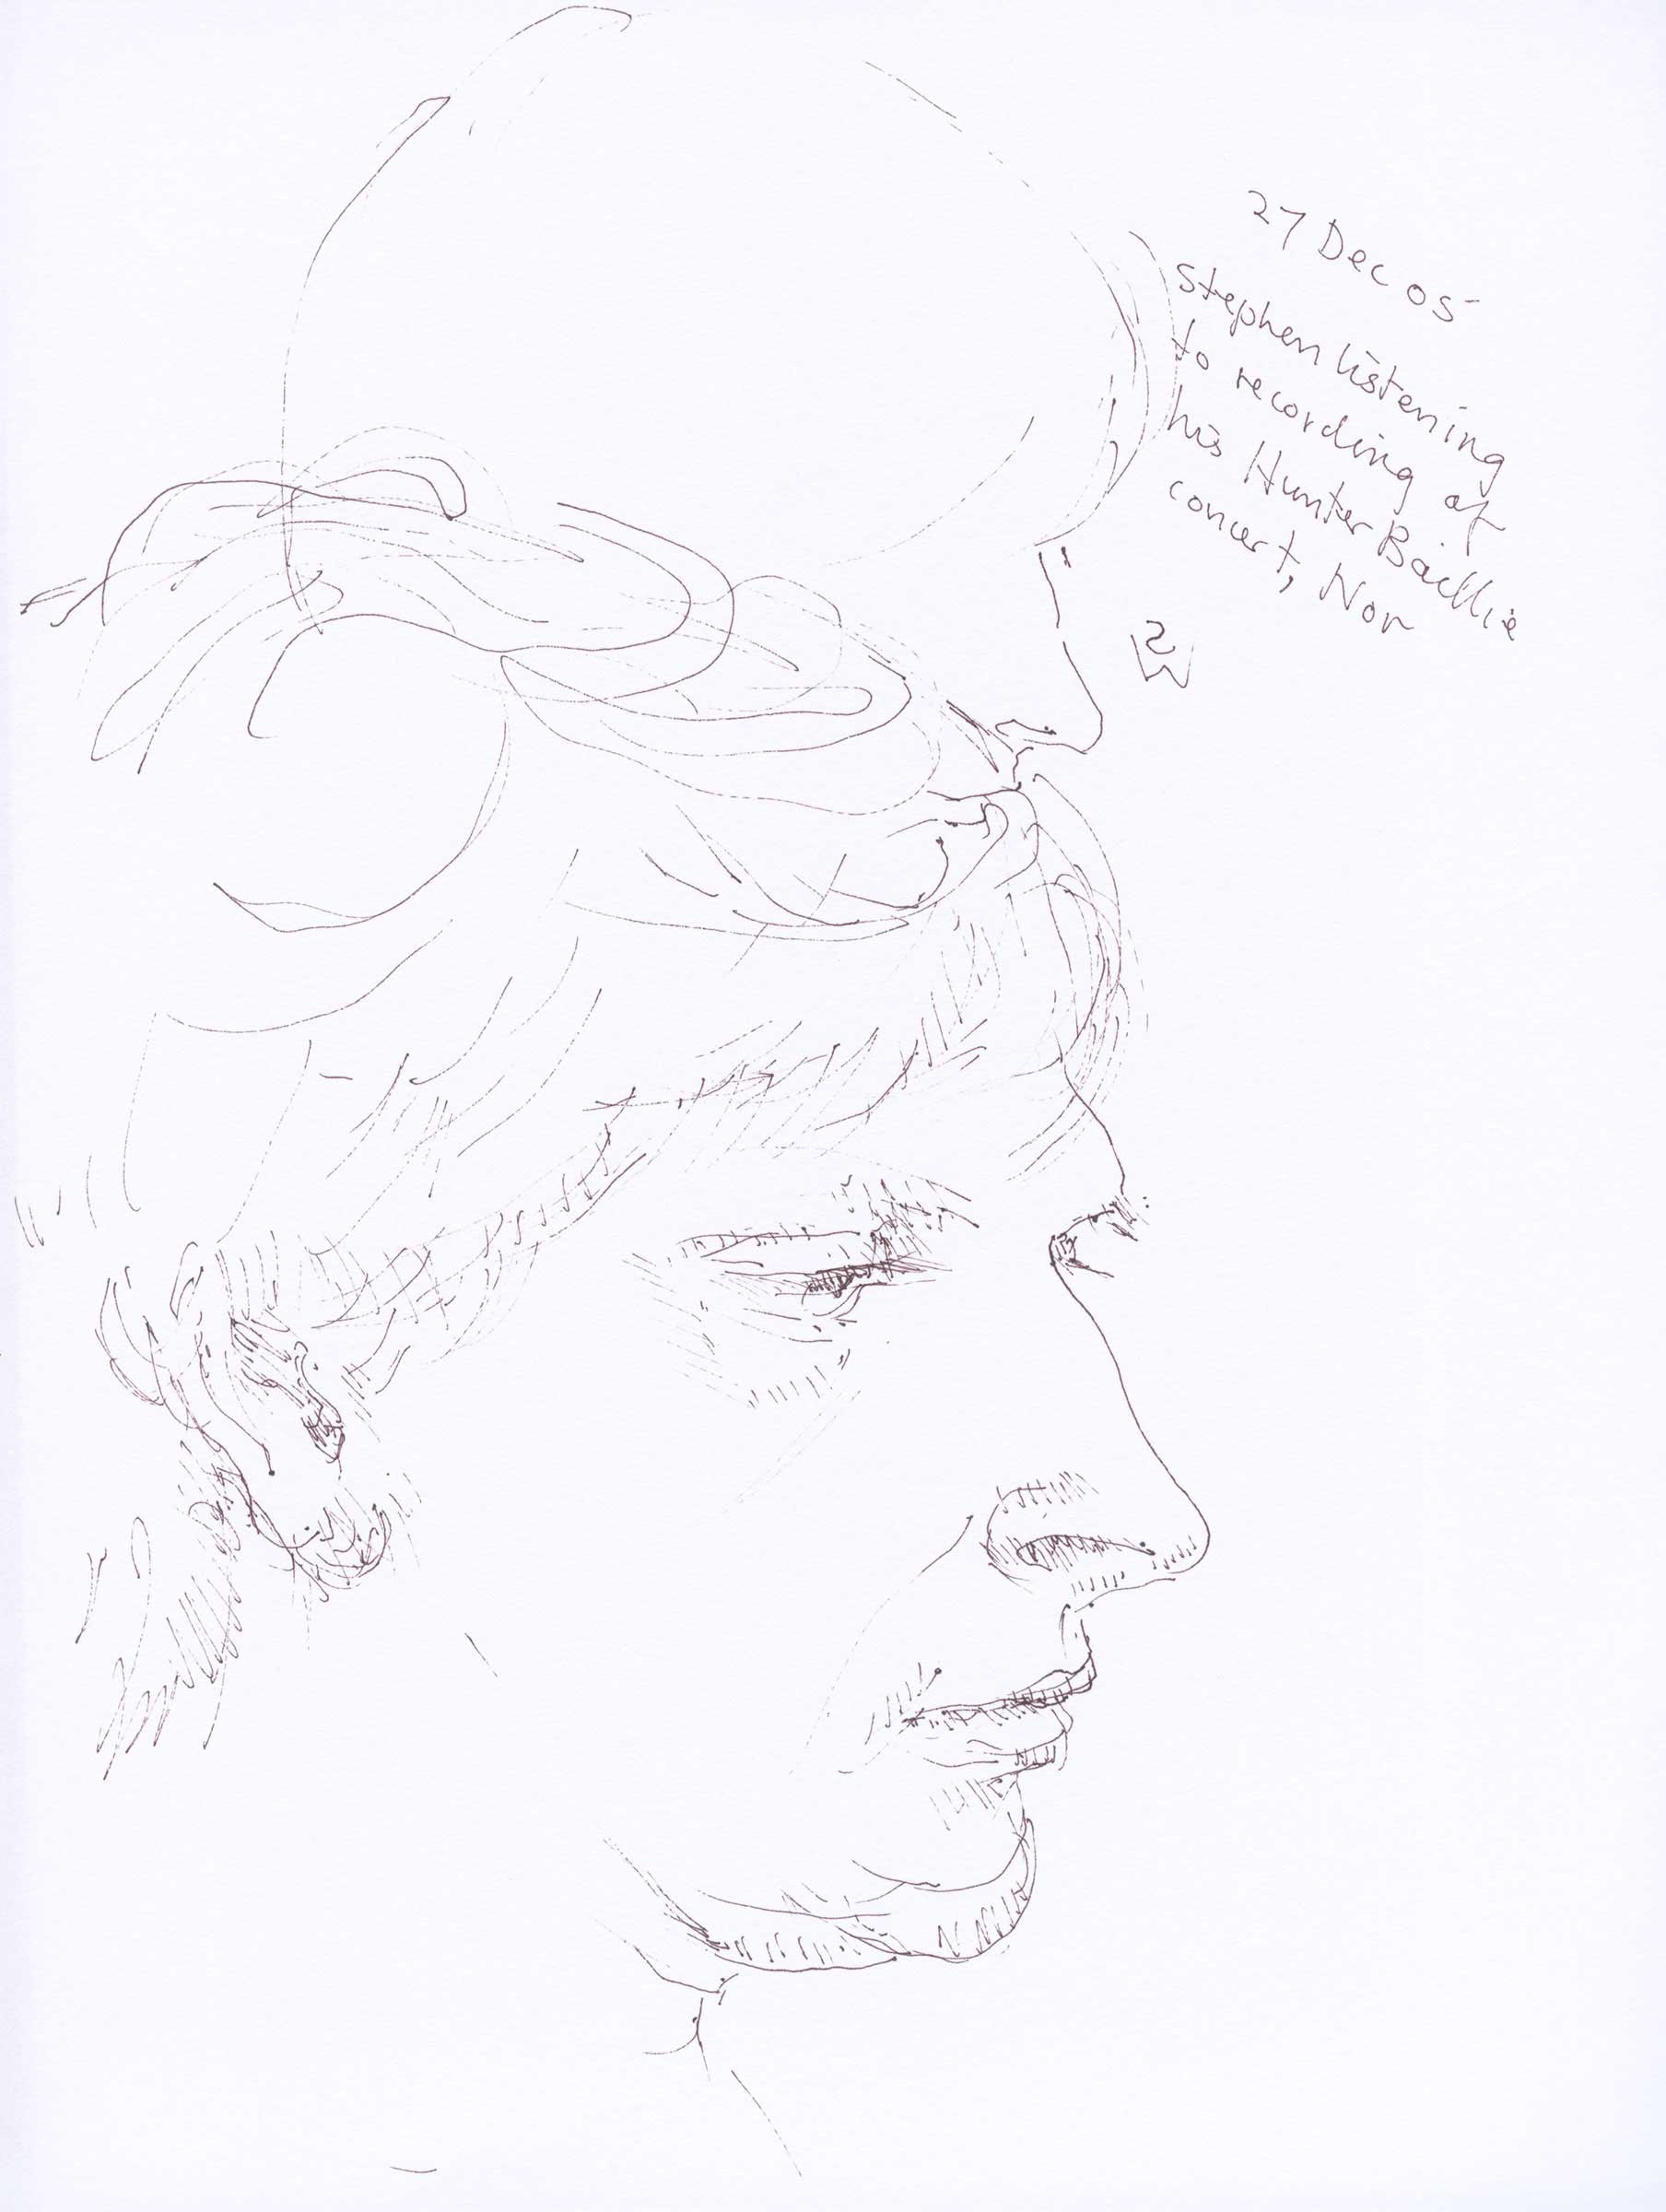 27 Dec 05
Stephen listening
to recording of
his Hunter Baillie
concert, Nov